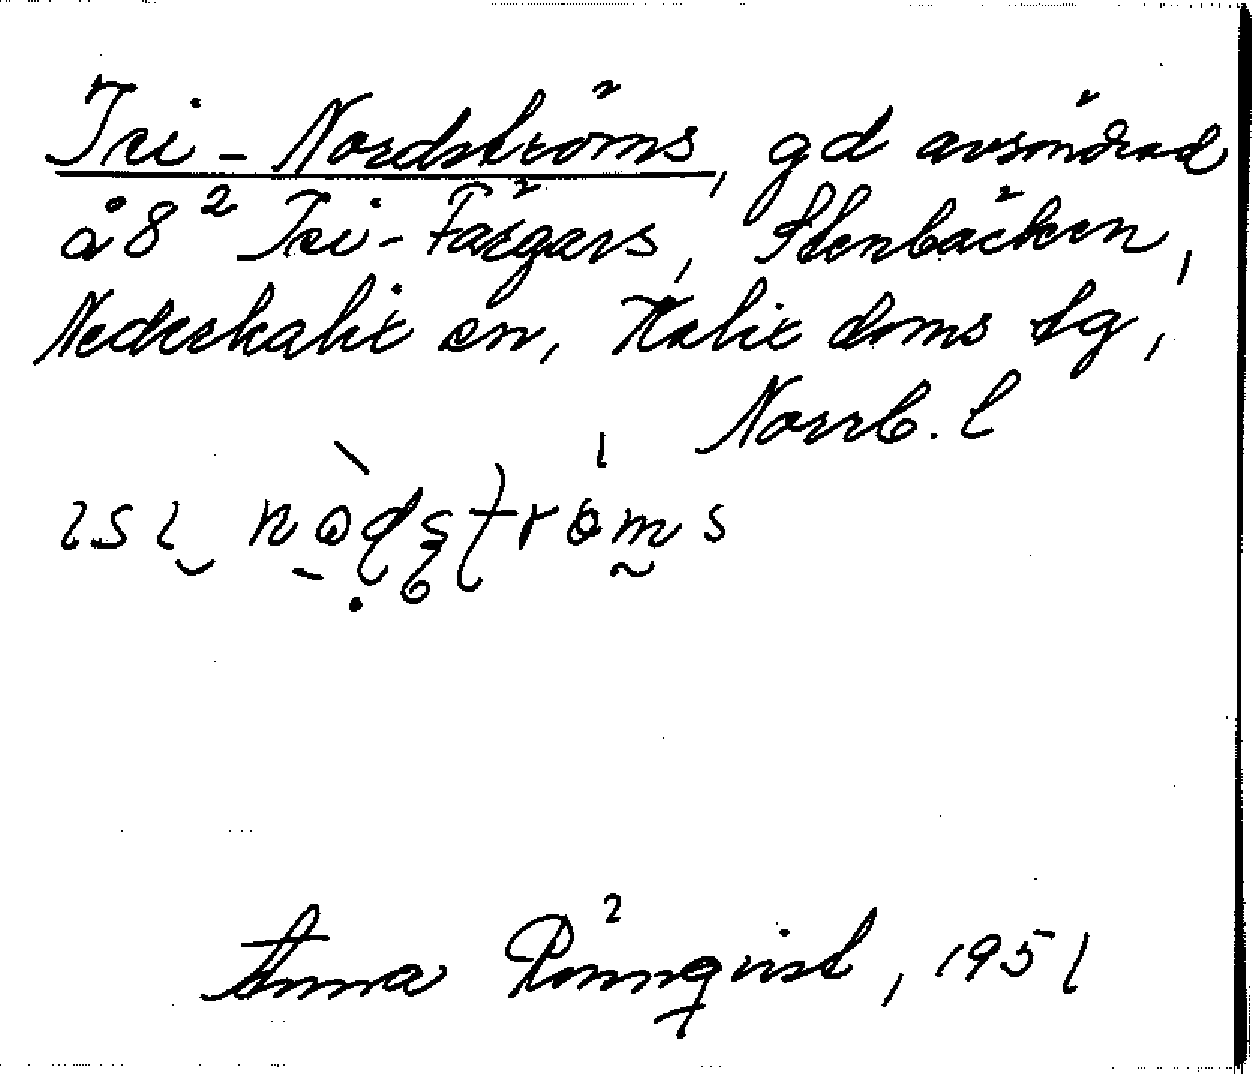 Isi-Nordströms, gd avsöndrad
å 8² Isi-Färgars, Stenbäcken,
Nederkalix sn, Kalix doms tg,
Norrb. l
Anna Rönnqvist, 1951